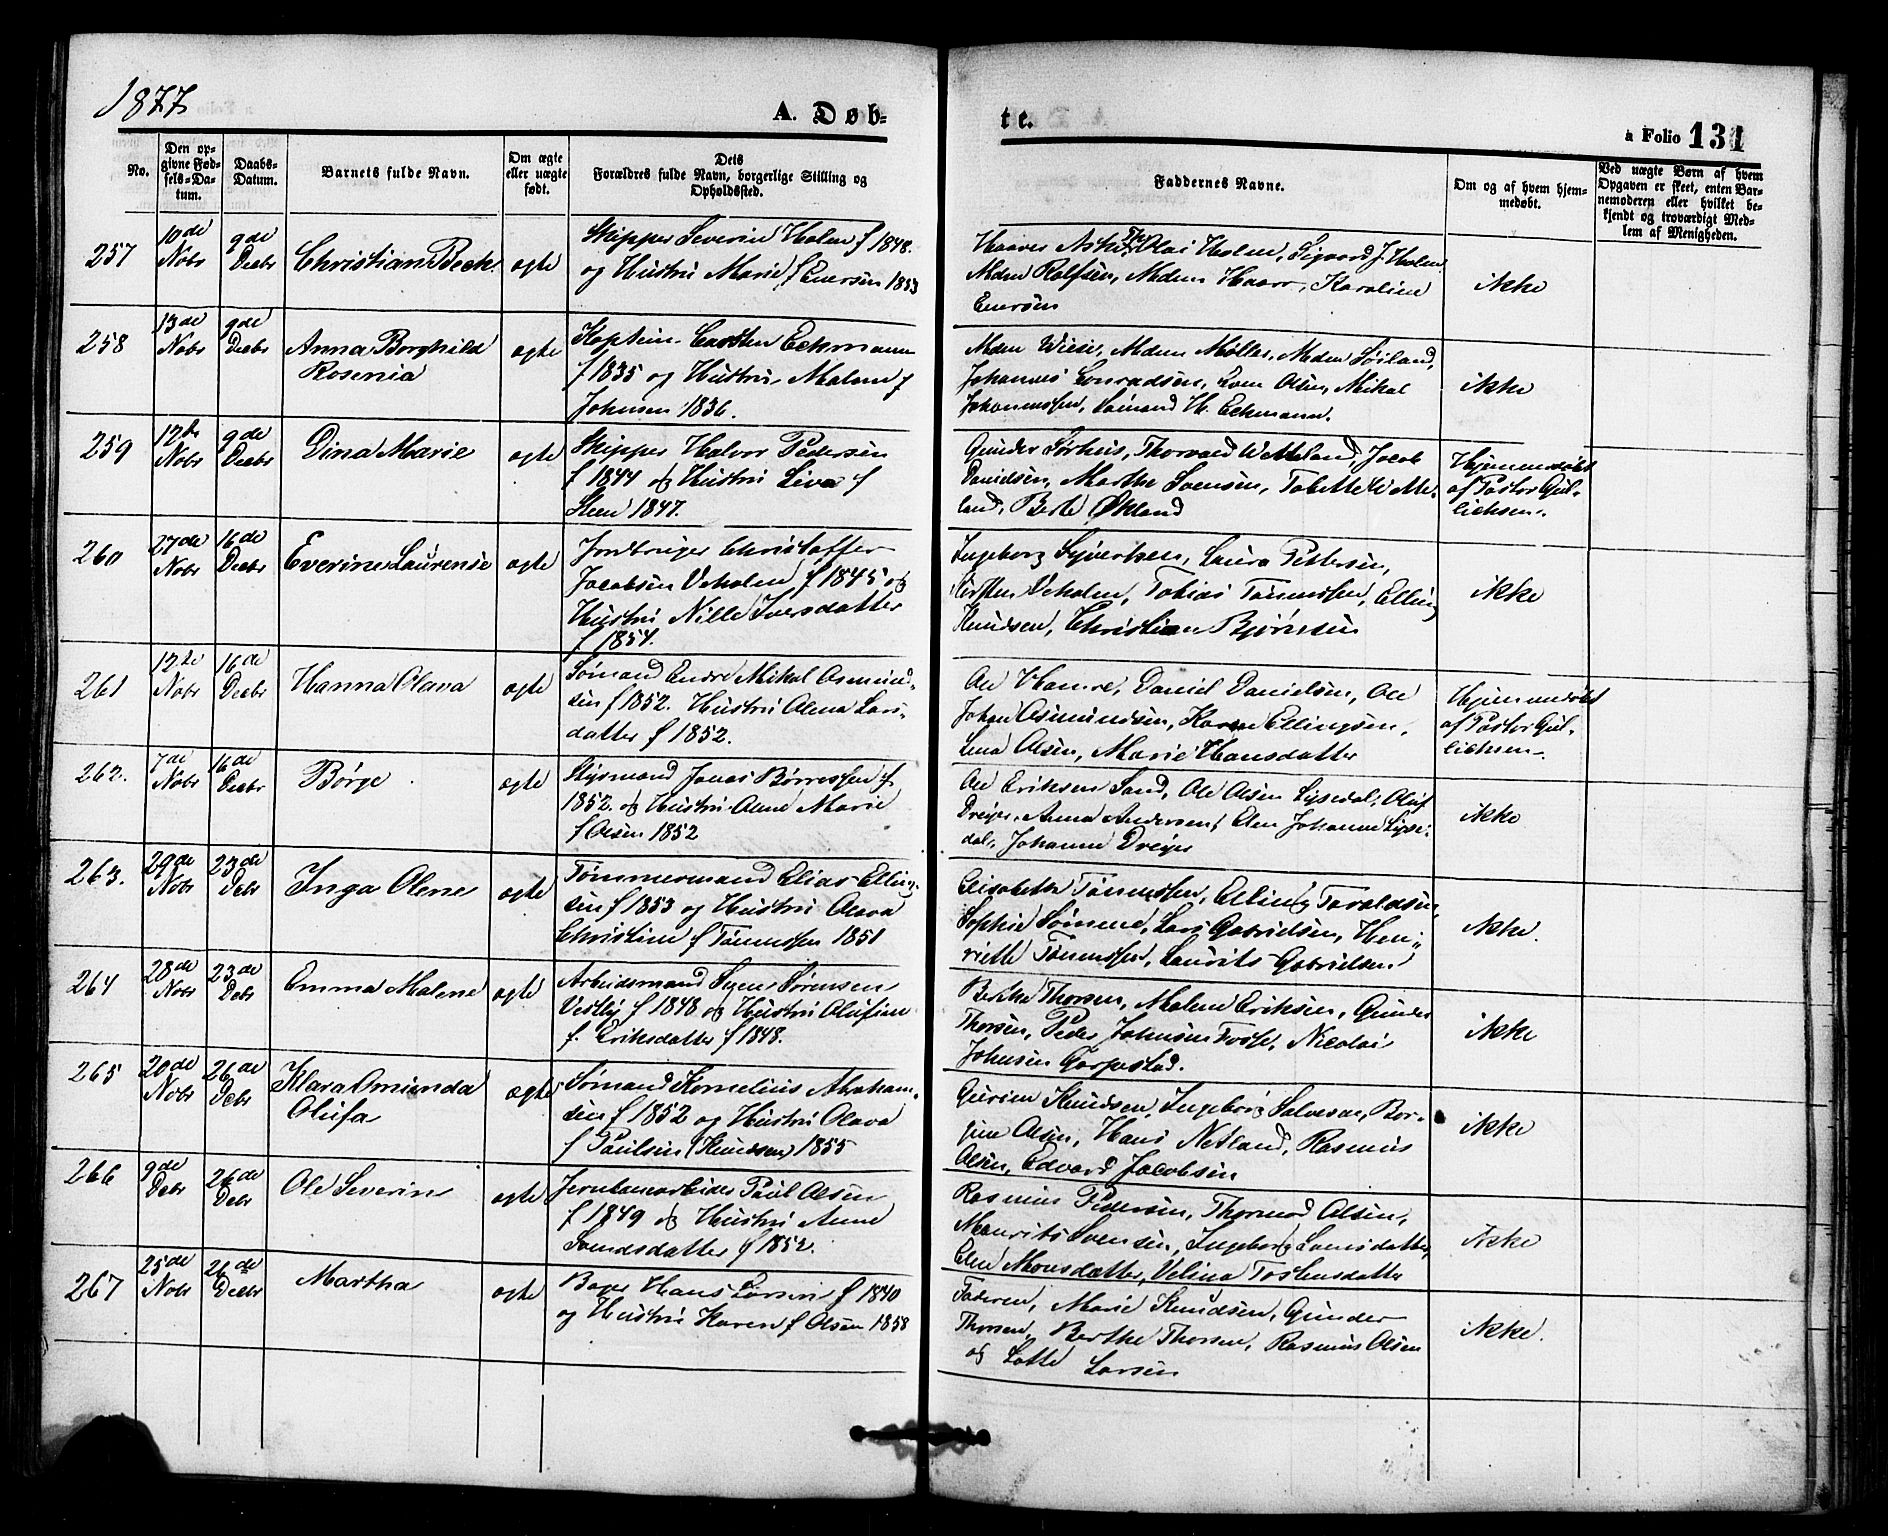 1877
A. Døb-
te.
a Folio 131
No.
Den op-
givne Fød-
sels-Da-
tum.
Daabs-
Datum.
Barnets fulde Navn.
Om ægte
eller uægte
født.
Dets
Forældres fulde Navn, borgerlige Stilling og
Opholdssted.
Faddernes Navne.
Om og af hvem hjem-
medøbt.
Ved uægte Børn af hvem
Opgaven er skeet, enten Bar-
nemoderen eller hvilket be-
kjendt og troværdigt Med-
lem af Menigheden.
257
10de
Nobr
9de
Decbr
Christian Beck
ægte
Skipper Severin Holm f 1848.
og Hustru Marie f Enersen 1853
Olai Holm, Sigvard J. Holm
Mdm Rolfsen, Mdm Haarr, Karoline
Enersen
ikke
258
13de
Nobr
9de
Decbr
Anna Borghild
Rosenia
ægte
Kaptein Carsten Eckmann
f 1835 og Hustru Malene f
Johnsen 1836.
Mdm Wiese, Mdm Møller, Mdm Søiland,
Johannes Conradsen, Sven Olsen, Mikal
Johannessen, Sømand H. Eckmann.
ikke
259
12te
Nobr
9de
Decbr
Dina Marie
ægte
Skipper Halvor Pedersen
f 1844 og Hustru Liva f
Steen 1847.
Gunder Sørhus, Thorvald Wetteland, Jacob
Danielsen, Marthe Svensen, Tobette Wette-
land, Berte Økland
Hjemmedøbt
af Pastor Gul-
lichsen.
260
27de
Nobr
16de
Decbr
Everine Laurense
ægte
Jordbruger Christoffer
Jacobsen Vehalen f 1845 og
Hustru Nille Iversdatter
f 1854.
Ingeborg Syvertsen, Laura Pettersen,
Kirsten Vehalen, Tobias Tønnessen, Elling
Knudsen, Christian Bjørnsen
ikke
261
12te
Nobr
16de
Decbr
Hanna Olava
ægte
Sømand Endre Mikal Asmund-
sen f 1852. Hustru Olena Lars-
datter f 1852.
Ole Hamre, Daniel Danielsen, Ole
Johan Asmundsen, Karen Ellingsen,
Lena Olsen, Marie Hansdatter
Hjemmedøbt
af Pastor Gul-
lichsen.
262.
7de
Nobr
16de
Decbr
Børge
ægte
Styrmand Jonas Børresen f.
1852. og Hustru Anne Marie
f Olsen 1852
Ole Eriksen Sand, Ole Olsen Lysedal, Oluf
Dreyer, Anna Andersen, Elen Johanne Lyse-
dal, Johanne Dreyer
ikke
263.
29de
Nobr
23de
Debr
Inga Olene
ægte
Tømmermand Elias Elling-
sen f 1853 og Hustru Olava
Christine f Tønnessen 1851
Elisabeth Tønnessen, Elling Taraldsen,
Sophie Sømme, Lars Gabrielsen, Hen-
riette Tønnessen, Laurits Gabrielsen
ikke.
264
28de
Nobr
23de
Debr
Emma Malene
ægte
Arbeidsmand Syen Sørensen
Vestly f 1848 og Hustru Olufine
f. Eriksdatter f 1848.
Berthe Thorsen, Malene Eriksen, Gunder
Thorsen, Peder Johnsen Fosse, Nicolai
Johnsen Garpestad.
ikke
265
20de
Nobr
26de
Debr
Klara Amunda
Olufa
ægte
Sømand Kornelius Abraham-
sen f 1852 og Hustru Olava
f Paulsen (Knudsen) 1855
Gurine Knudsen, Ingeborg Salvesen, Bor-
jine Olsen, Hans Netland, Rasmus
Olsen, Edvard Jacobsen
ikke
266
9de
Debr
26de
Debr
Ole Severin
ægte
Jernbanearbeider Paul Olsen
f 1849 og Hustru Anne
Svendsdatter f 1852.
Rasmus Pedersen, Thormod Olsen,
Maurits Svensen, Ingeborg Svensdatter,
Elen Monsdatter, Velina Tostensdatter
ikke
267
25de
Nobr
26de
Decbr
Martha
ægte
Bager Hans Larsen f 1840
og Hustru Karen f Olsen 1858
Faderen, Marie Knudsen, Gunder
Thorsen, Berthe Thorsen, Rasmus Olsen
og Lotte Larsen
ikke.